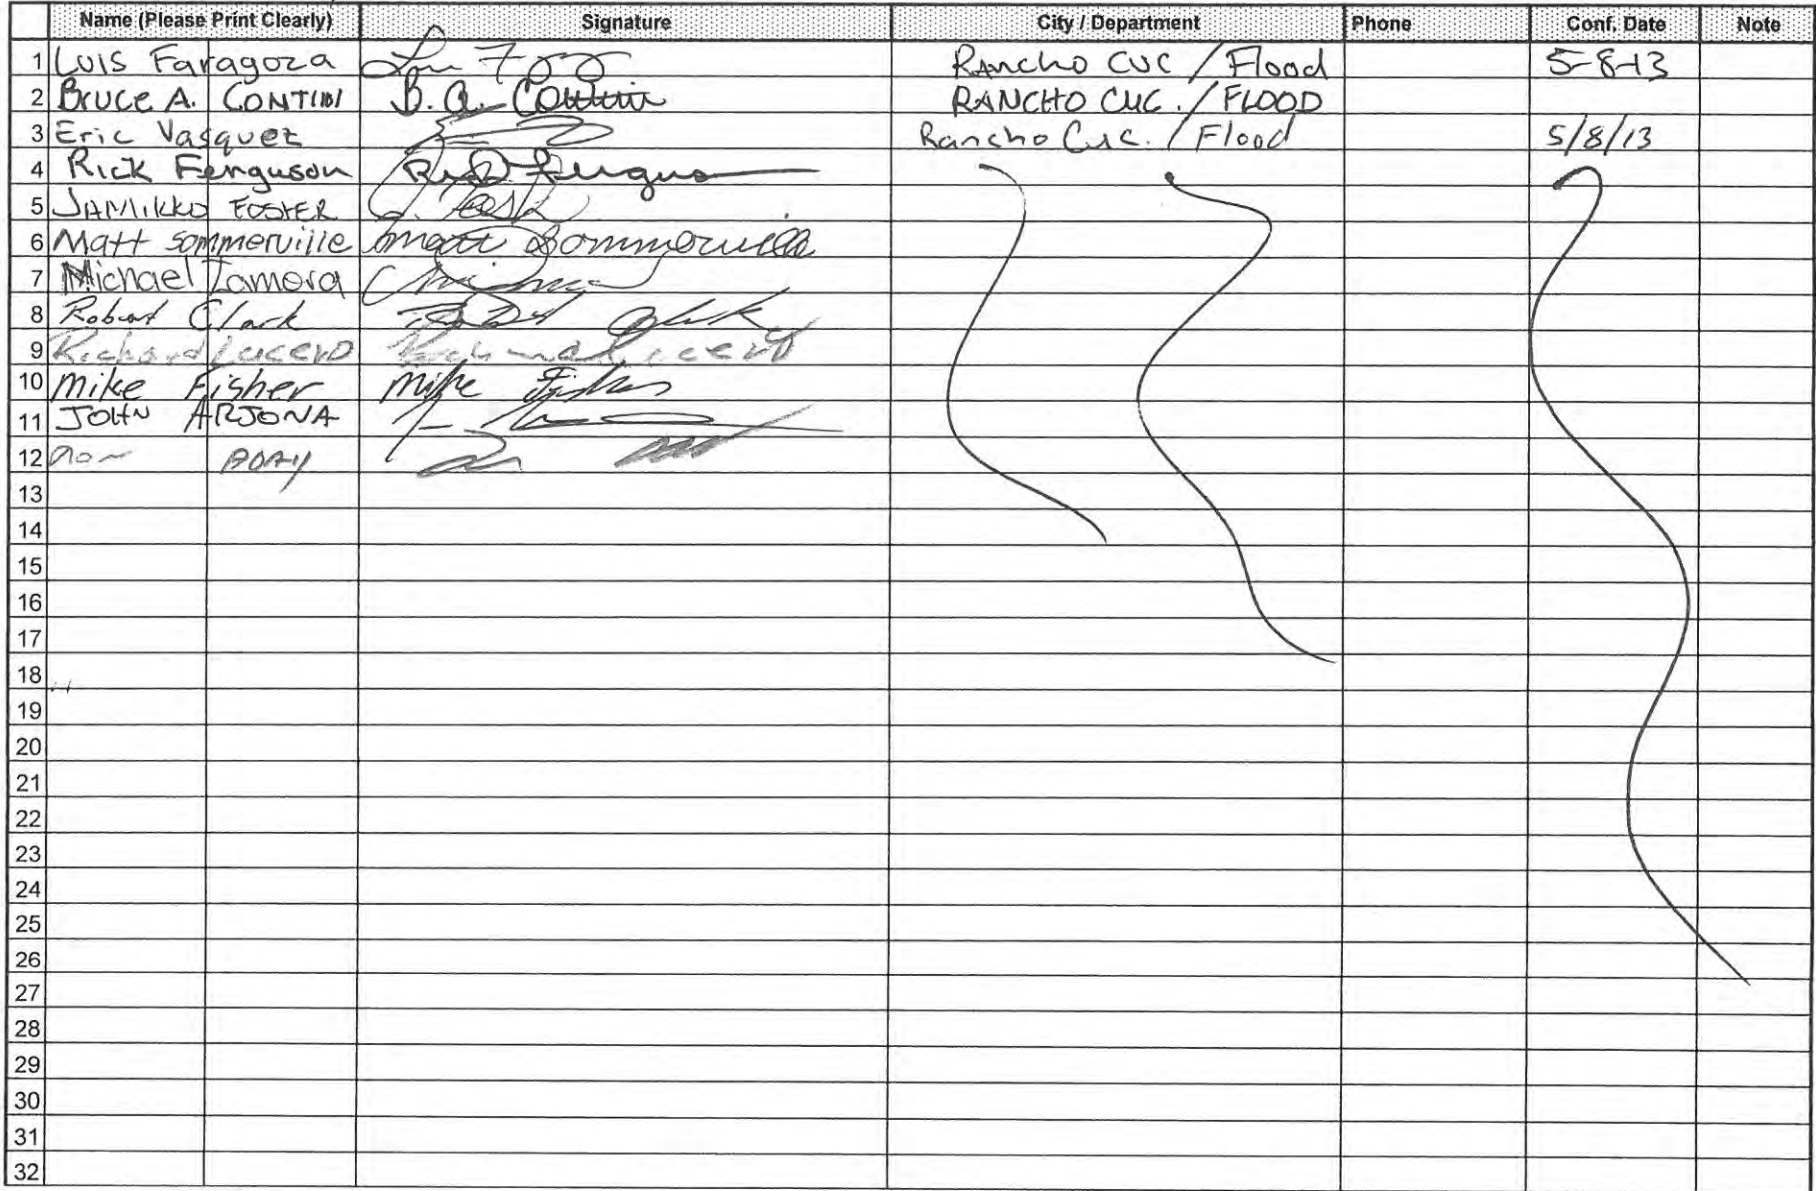 Name (Please Print Clearly) Signature City / Department Phone Conf. Date Note
1 Luis Faragoza Rancho CUC / Flood 5-8-13
2 Bruce A. CONTINI B. A. Contini RANCHO CUC. / FLOOD
3 Eric Vasquez Rancho Cuc. / Flood 5/8/13
4 Rick Ferguson Rick Ferguson
5 JAMIKKO FOSTER J. Fost
6 Matt Sommerville Matt Sommerville
7 Michael Zamora
8 Robert Clark Robert Clark
9 Richard Lucero Richard Lucero
10 Mike Fisher Mike Fisher
11 JOHN ARJONA
12 Ron
13
14
15
16
17
18
19
20
21
22
23
24
25
26
27
28
29
30
31
32